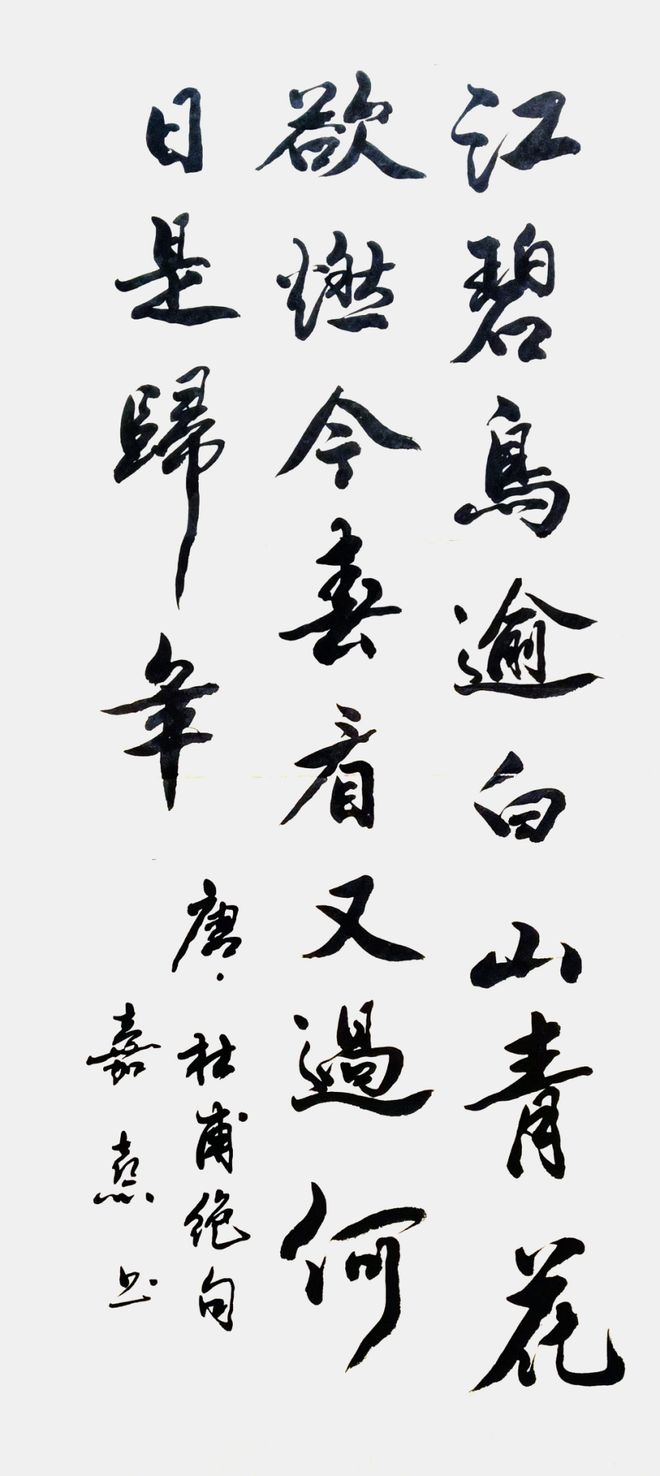 江碧鳥逾白山青花
欲燃今春看又過何
日是歸年
唐·杜甫绝句
嘉熹书